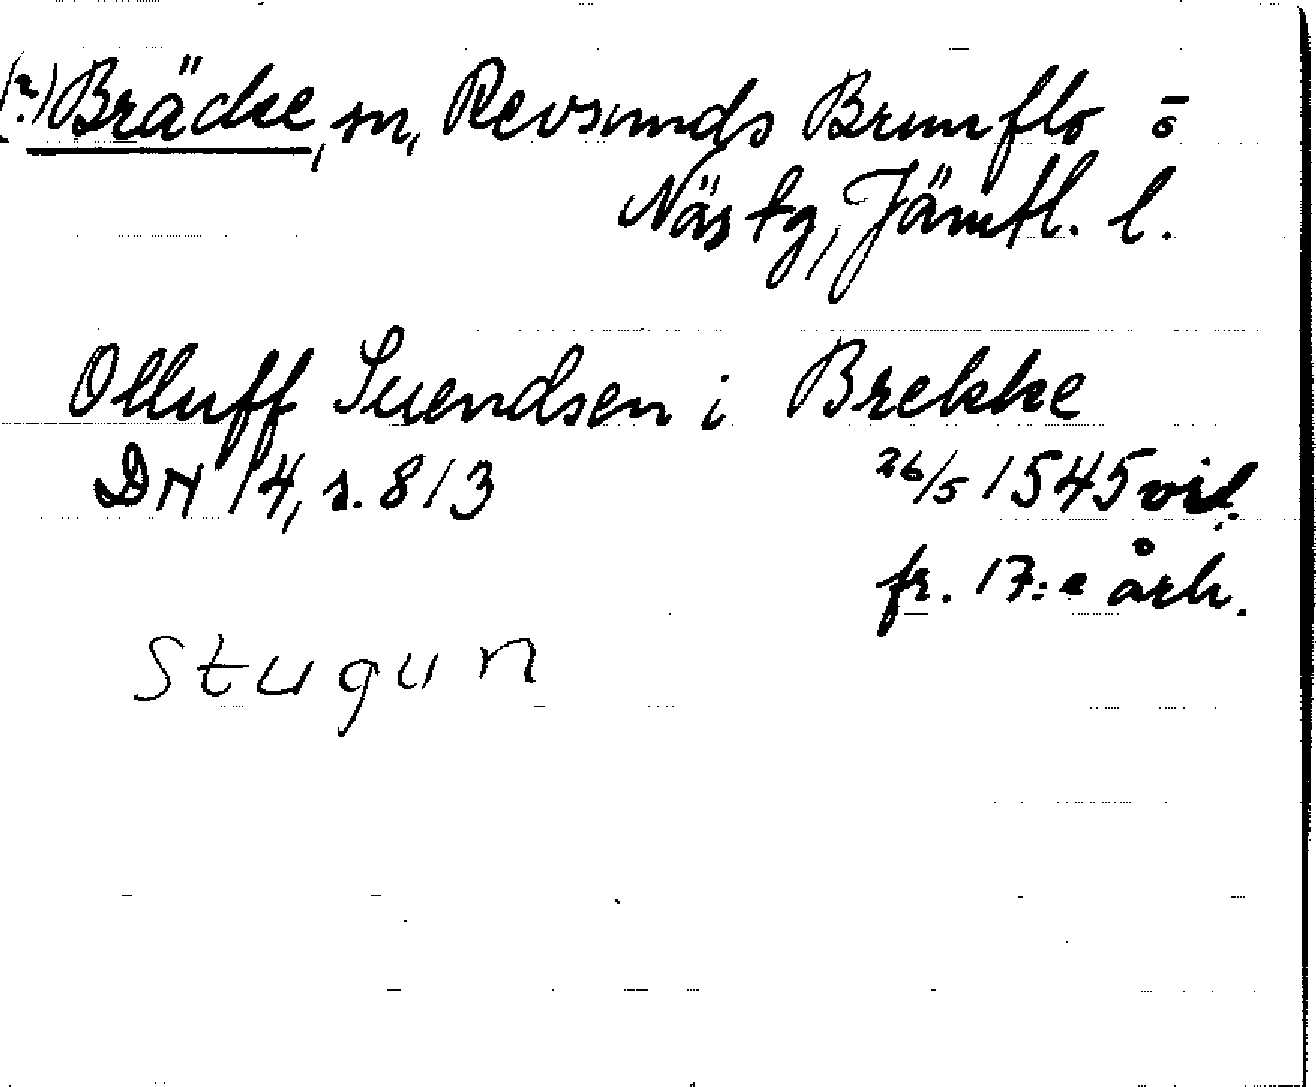 (?) Bräcke, sn, Revsunds Brunflo o
Näs tg, Jämtl. l.
Olluff Suendsen i Brekke
DN 14, s. 813 26/5 1545 vid.
fr. 17:e årh.
Stugun